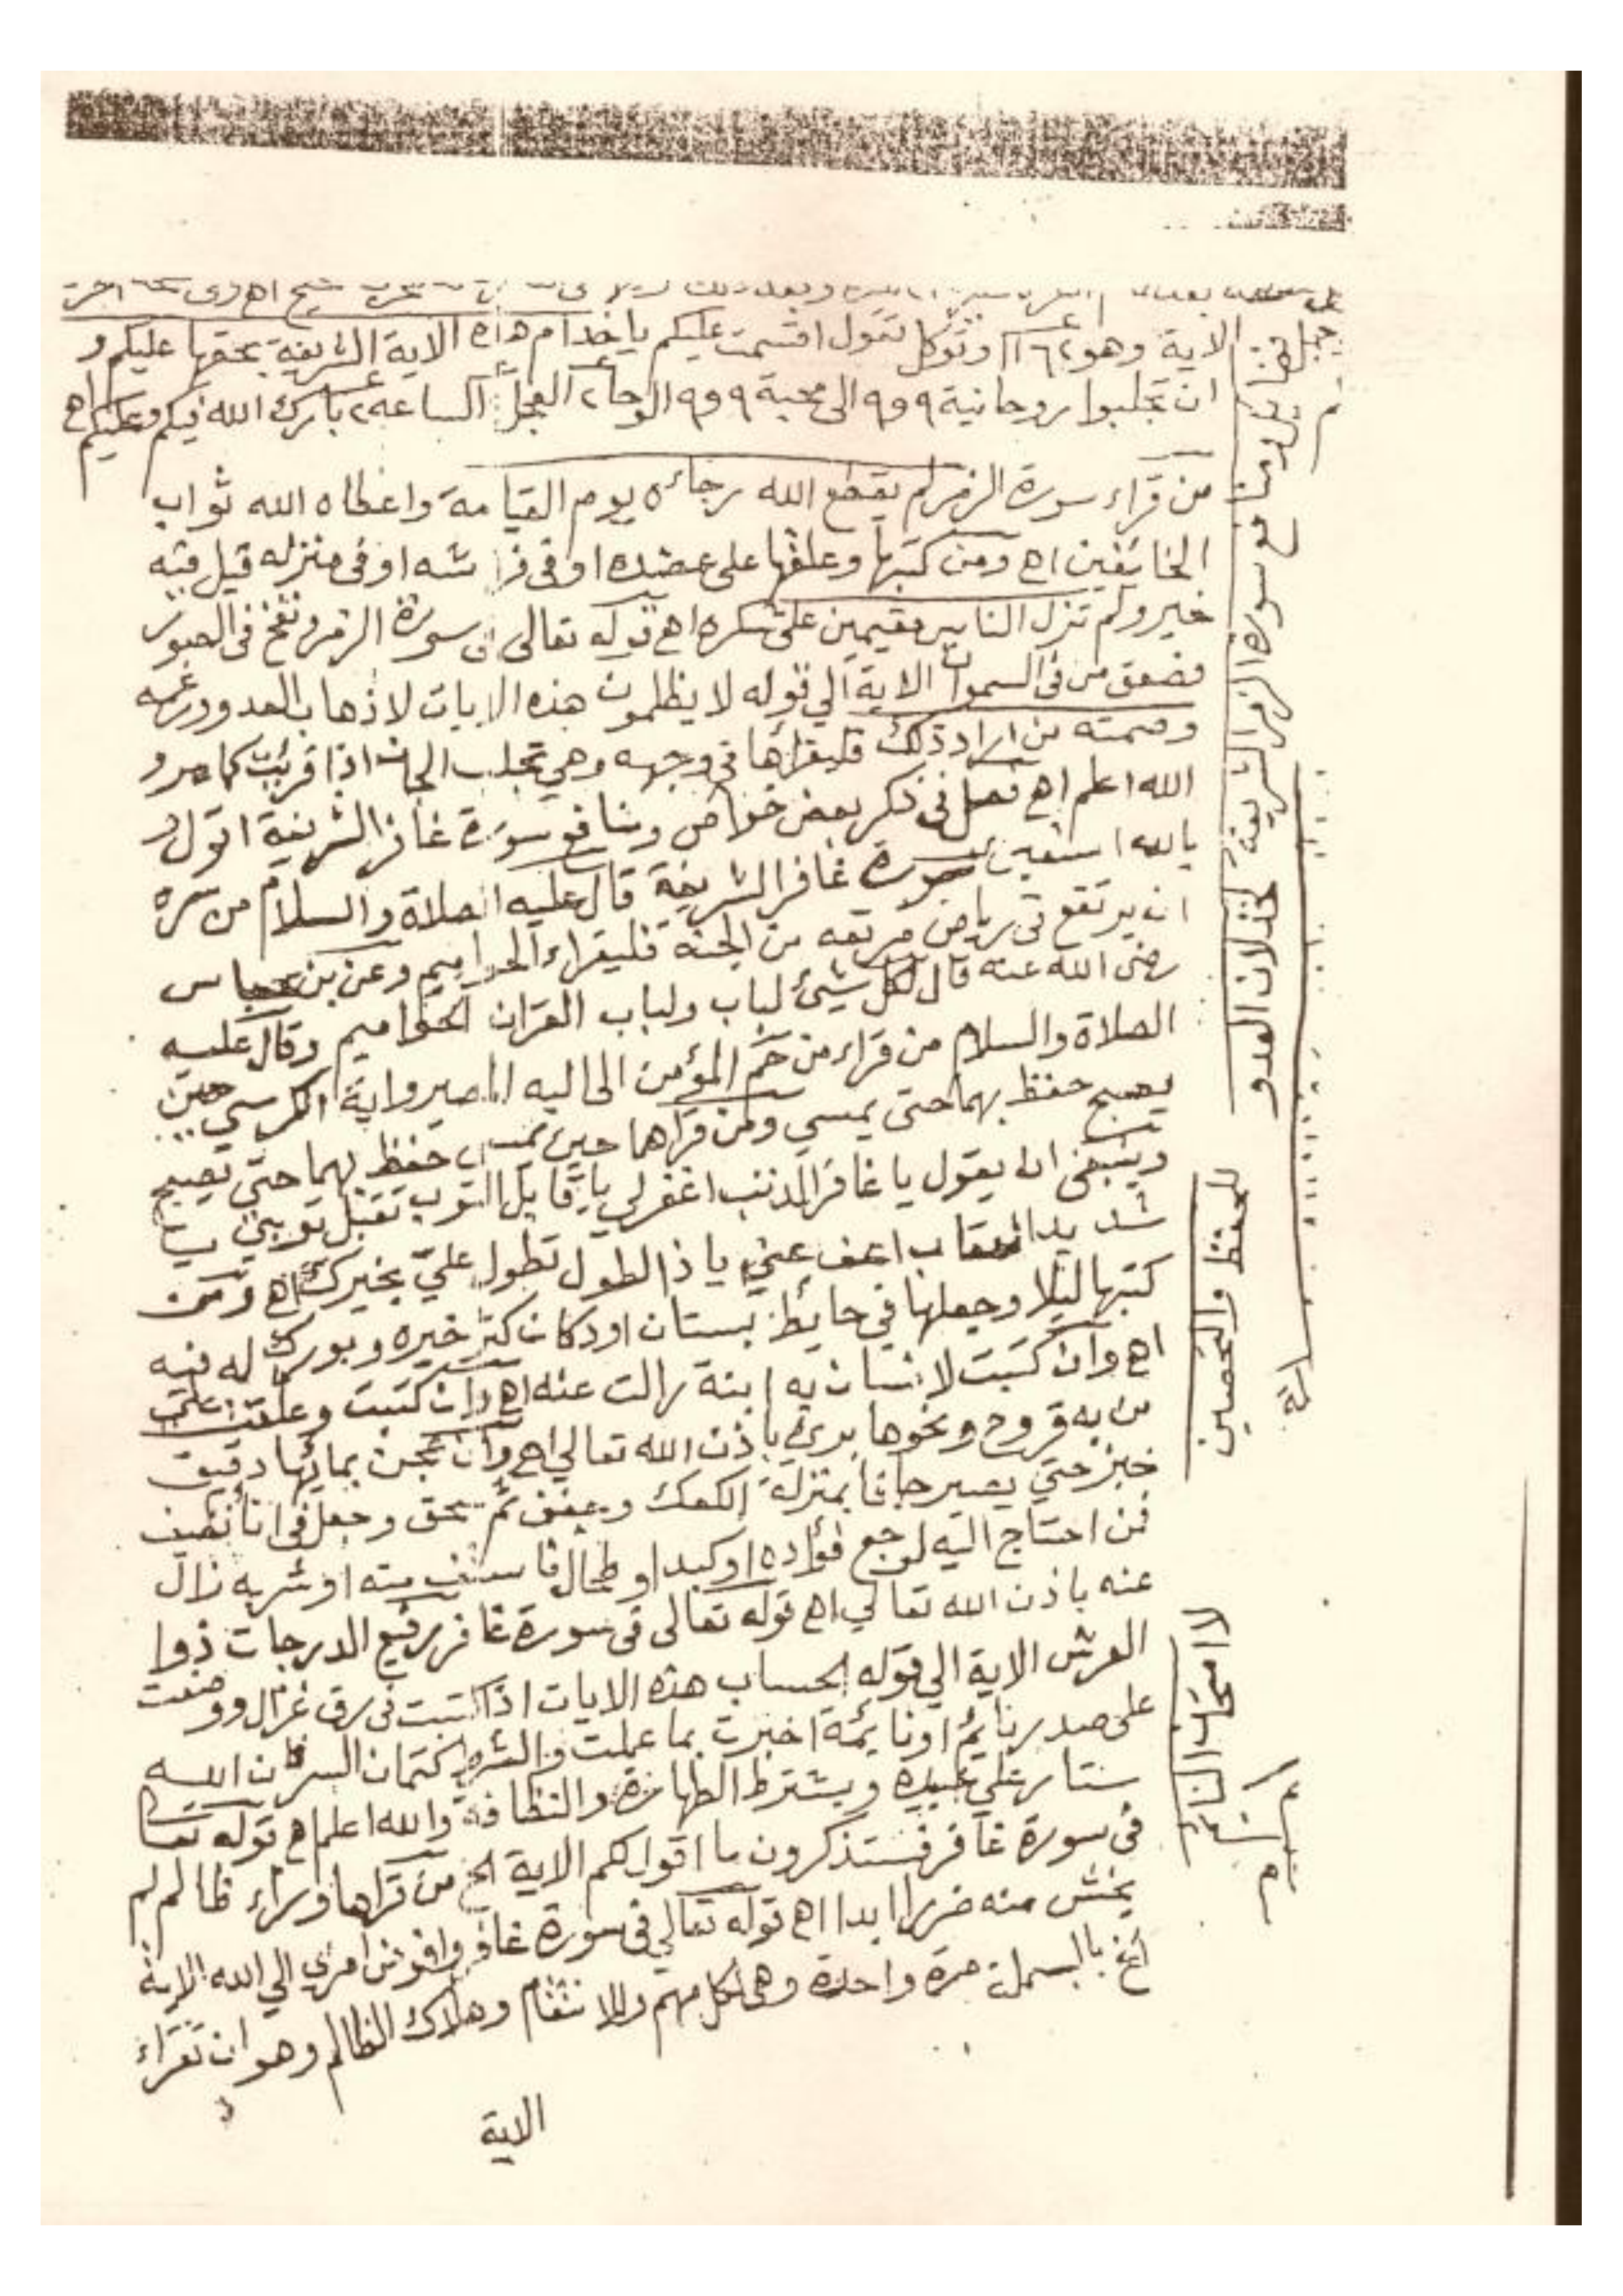 الاية وهو ١٦٤٢ وتوكل تقول اقسمت عليكم ياخدام هذه الاية الشريفة بحقها عليكم و
ان تجلبوا روحانية ٩ و٩ الى محبة ٩ و٩ الوحا ٢ العجل ٢ الساعه ٢ بارك الله فيكم وعليكم اه
من قراء سورة الزمر لم يقطع الله رجائه يوم القيامة واعطاه الله ثواب
الخائفين اه ومن كتبها وعلقها على عضده او فى فراشه او فى منزله قيل فيه
خير ولم تزل الناس مقيمين على شكره اه قوله تعالى فى سورة الزمر ونفخ فى الصور
فصعق من فى السموات الاية الي قوله لا يظلمون هذه الايات لاذهاب العدو ورغمه
وصمته من اراد ذلك فليقرأها فى وجهه وهي تجلب الجان اذا قريت كما مر و
الله اعلم اه فصل فى ذكر بعض خواص ومنافع سورة غافر الشريفة اقول و
بالله استعين سورة غافر الشريفة قال عليه الصلاة والسلام من سره
ان يرتفع فى رياض مرتعه من الجنة فليقراء الحواميم وعن بن عباس
رضى الله عنه قال لكل شيئ لباب ولباب القران الحواميم وقال عليه
الصلاة والسلام من قراء من حم المؤمن الى اليه المصير واية الكرسي حين
يصبح حفظ بهما حتى يمسي ومن قراهما حين يمسى حفظ بهما حتي يصبح
وينبغى ان يقول يا غافر الذنب اغفر لي يا قابل التوب تقبل توبتي يا
شديد العقاب اعف عني يا ذا الطول تطول عليّ بخيرك اه ومن
كتبها ليلا وجعلها في حايط بستان او دكان كثر خيره وبورك له فيه
اه وان كتبت لانسان به ابنة زالت عنه اه وان كتبت وعلقت على
من به قروح ونحوها برئ باذن الله تعالي اه وان عجن بمائها دقيق
خبز حتي يصير جافا بمنزلة الكعك وجفف ثم سحق وجعل فى انا نضيف
فمن احتاج اليه لوجع فؤاده او كبد او طحال فاستف منه او شربه زال
عنه باذن الله تعالي اه قوله تعالى فى سورة غافر رفيع الدرجات ذوا
العرش الاية الي قوله الحساب هذه الايات اذا كتبت فى رق غزال ووضعت
على صدر نايم او نايمة اخبرت بما عملت والشرط كتمان السر فان الله
ستار على عبيده ويشترط الطهارة والنظافة والله اعلم اه قوله تعالى
فى سورة غافر فستذكرون ما اقول لكم الاية الخ من قراها وراء ظالم لم
يخش منه ضررا ابدا اه قوله تعالي فى سورة غافر وافوض امري الي الله الاية
الخ بالبسملة مرة واحدة وهى لكل مهم وللانتقام وهلاك الظالم وهو ان تقراء
الاية
منافع سورة الزمر الشريفة
لخذلان العدو
للحفظ والتحصين
لامتحان النايم